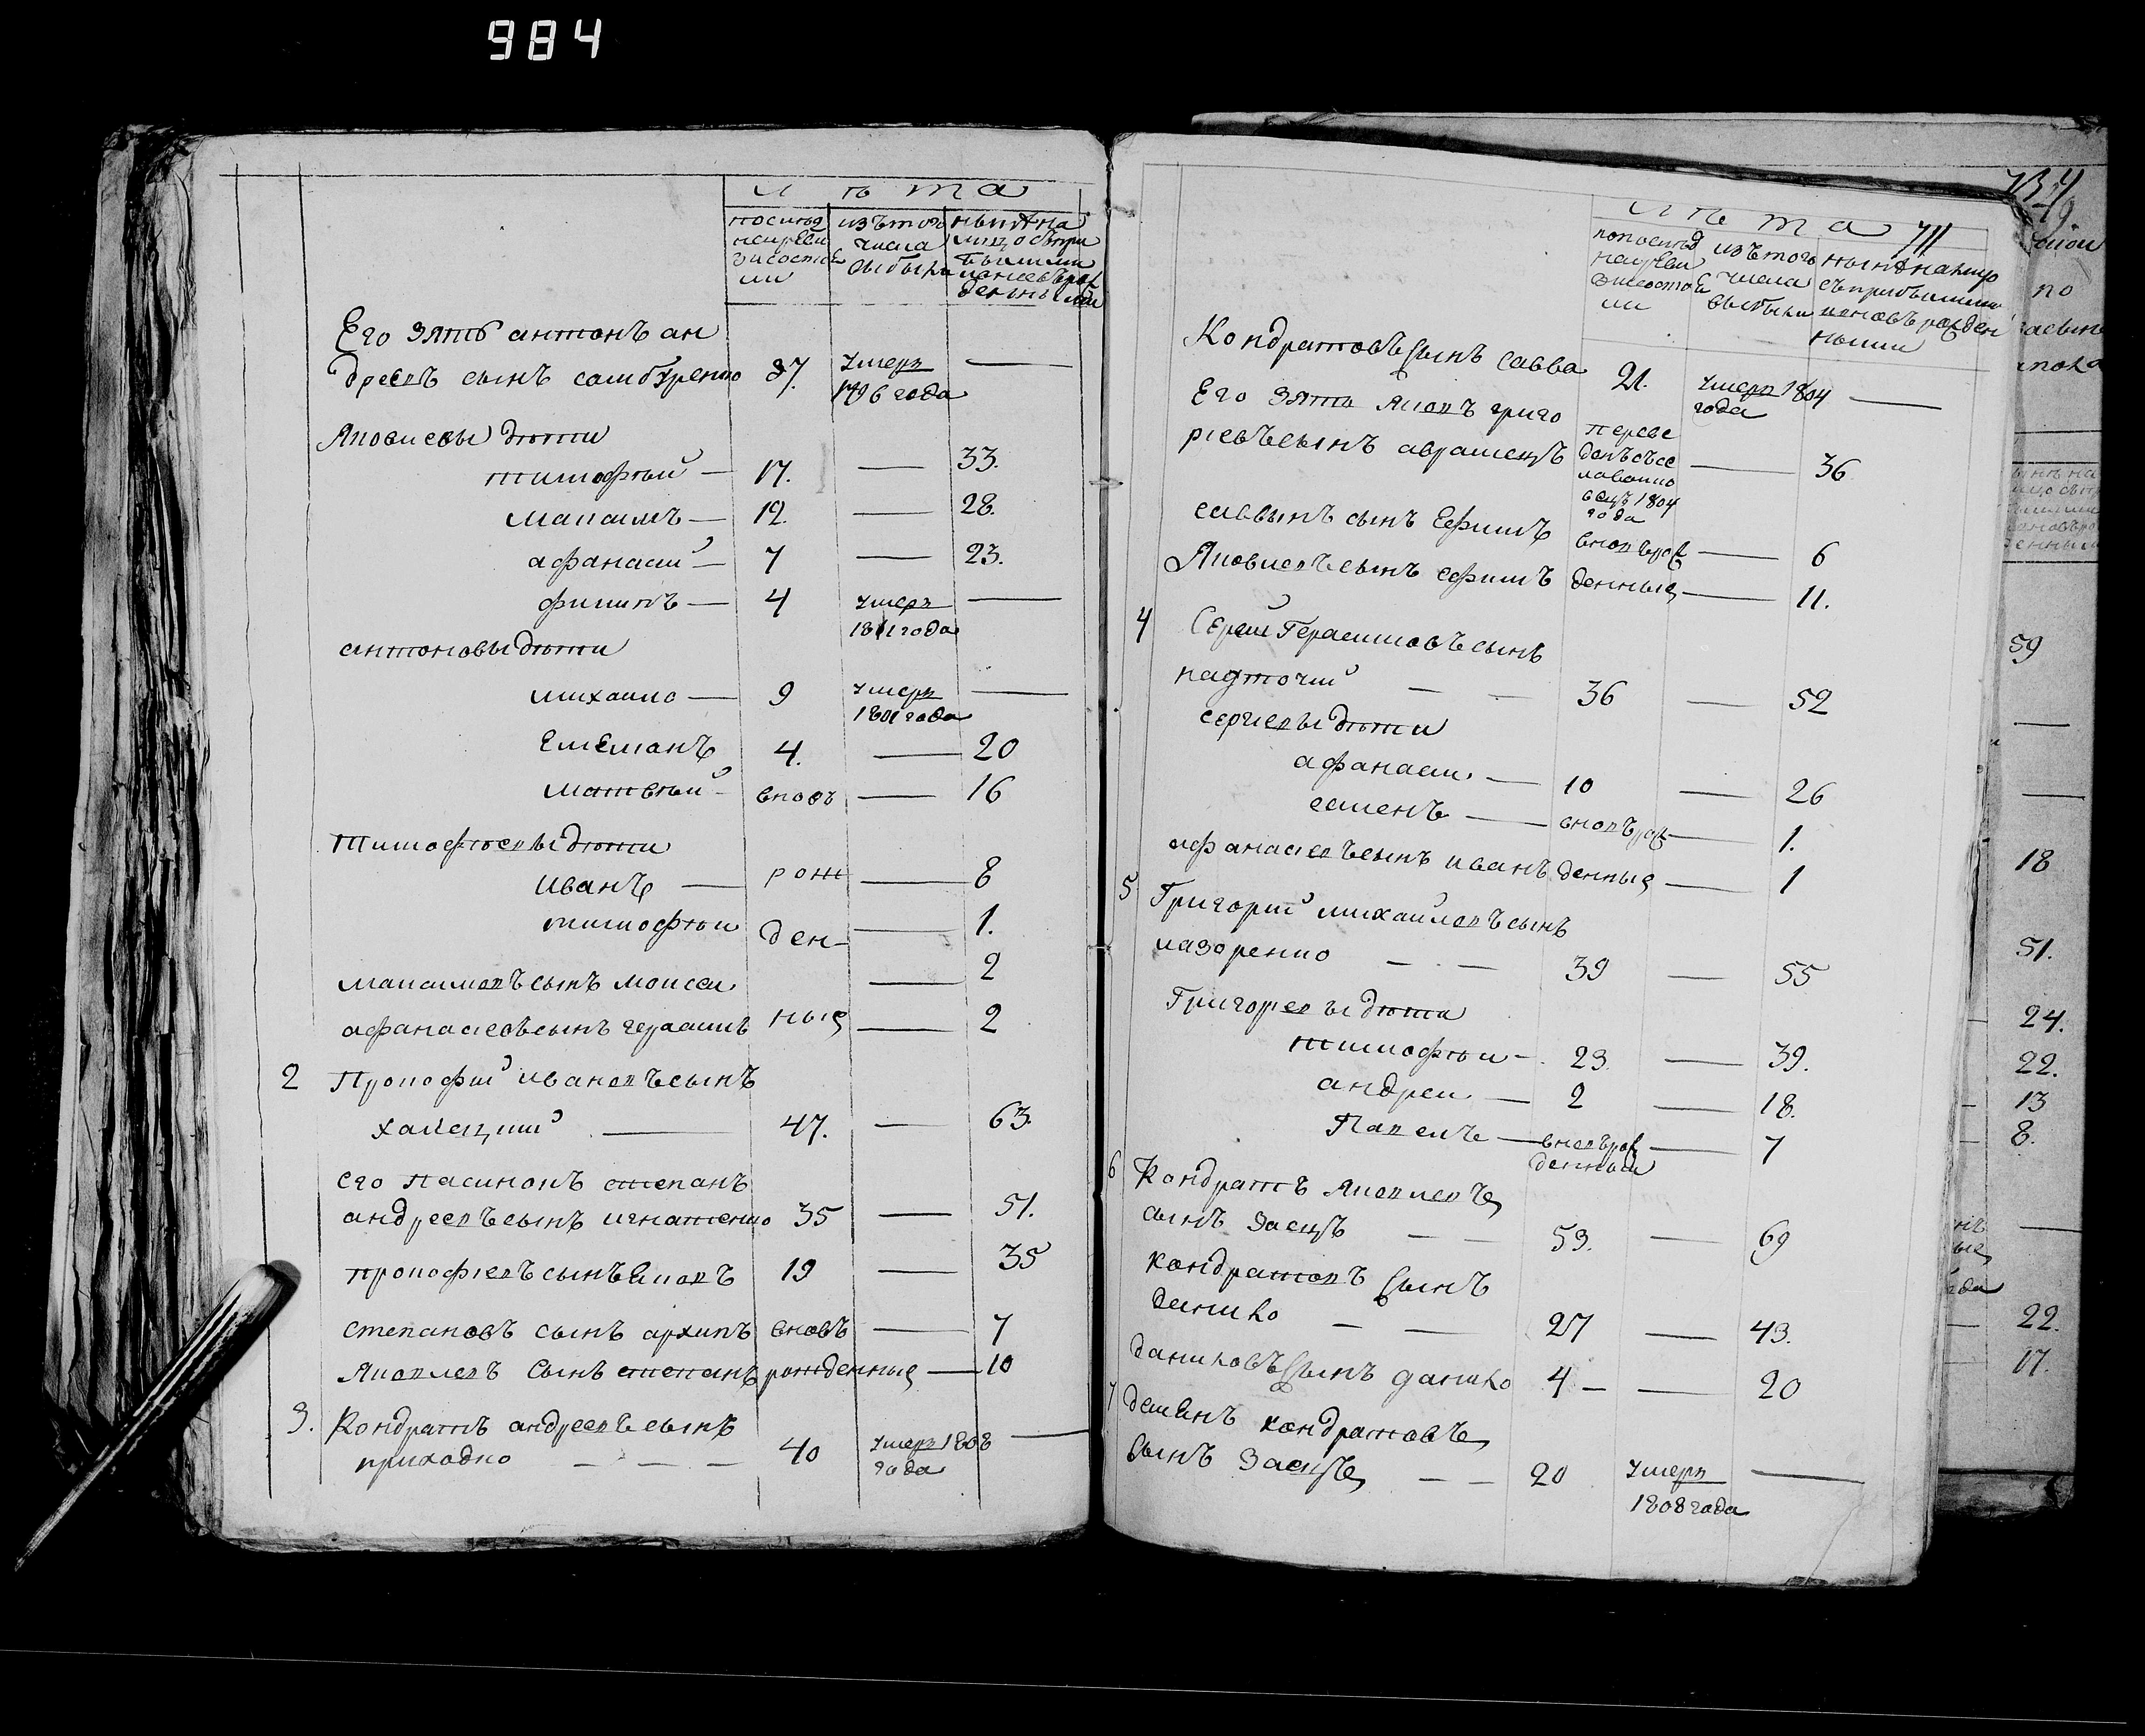 984
лѣта
по послѣд
ней реви
зіи состоя
ли
изъ того
числа
выбыло
нынѣ на
лицо съ при
былыми
и вновь рож
денными
Его зять антонъ ан
дреевъ сынъ самбуренко 37. умеръ —
1796 года
Яковлевы дѣти
тимофѣй — 17. — 33.
Максимъ — 12. — 28.
афанасий — 7 — 23.
филипъ — 4 умеръ —
1811 года
антоновы дѣти
михайло — 9 умеръ —
1801 года
Емелианъ 4. — 20
матвѣй — вновь — 16
Тимофѣевы дѣти
Иванъ — рож — 8
тимофѣи ден — 1.
максимовъ сынъ моисеи — 2
афанасиевъ сынъ герасимъ ные — 2
2 Прокофий ивановъ сынъ
халецкий — 47. — 63.
его пасинокъ степанъ
андреевъ сынъ игнатенко 35 — 51.
прокофиевъ сынъ Яковъ 19 — 35
степановъ сынъ архипъ вновь — 7
Яковлевъ сынъ степанъ рожденные — 10
3. Кондратъ андреевъ сынъ
приходко — — — 40 умеръ 1808 —
года
лѣта 711
по послѣд
ней реви
зіи состоя
ли
изъ того
числа
выбыли
нынѣ на лицо
съ прибылыми
и вновь рожден
ными
Кондратовъ сынъ савва 21. умеръ 1804 —
года
Его зять Яковъ григо
риевъ сынъ авраменъ переве
денъ съ се
1804
года
— 36
саввинъ сынъ Ефимъ вновь рож — 6
Яковлевъ сынъ ефимъ денные — 11.
4 Сергий Герасимовъ сынъ
надточий — — 36 — 52
сергиевы дѣти
афанаси — 10 — 26
семенъ — вновь рож — 1.
афанасиевъ сынъ иванъ денные — 1
5 Григорий михайловъ сынъ
лазоренко — — 39 — 55
Григориевы дѣти
тимофѣи — 23 — 39.
андреи — 2 — 18.
Павелъ — вновь рож — 7
денный
6 Кондратъ Яковлевъ
сынъ Заецъ — — 53. — 69
кондратовъ сынъ
данило — — 27 — 43.
даниловъ сынъ данило 4 — — 20
7 демянъ кондратовъ
сынъ Заецъ — — 20 умеръ —
1808 года
по
59
18
51.
24.
22.
13
8.
22.
17.